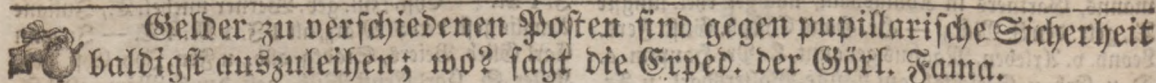 Gelder zu verschiedenen Posten sind gegen pupillarische Sicherheit
baldigst auszuleihen; wo? sagt die Exped. der Görl. Fama.